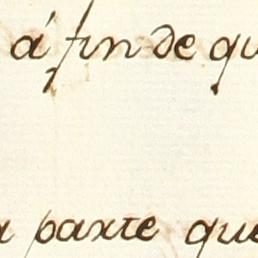 á fin de qu
a parte que